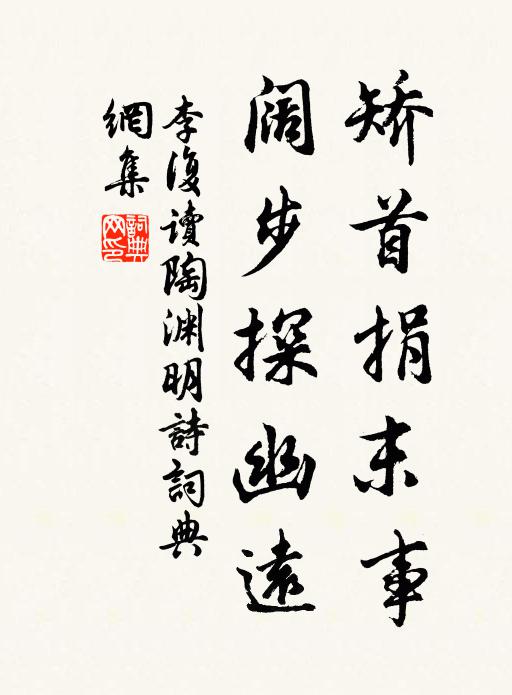 矫首捐末事
阔步探幽遠
李復讀陶渊明詩詞典
網集
詞典
网印